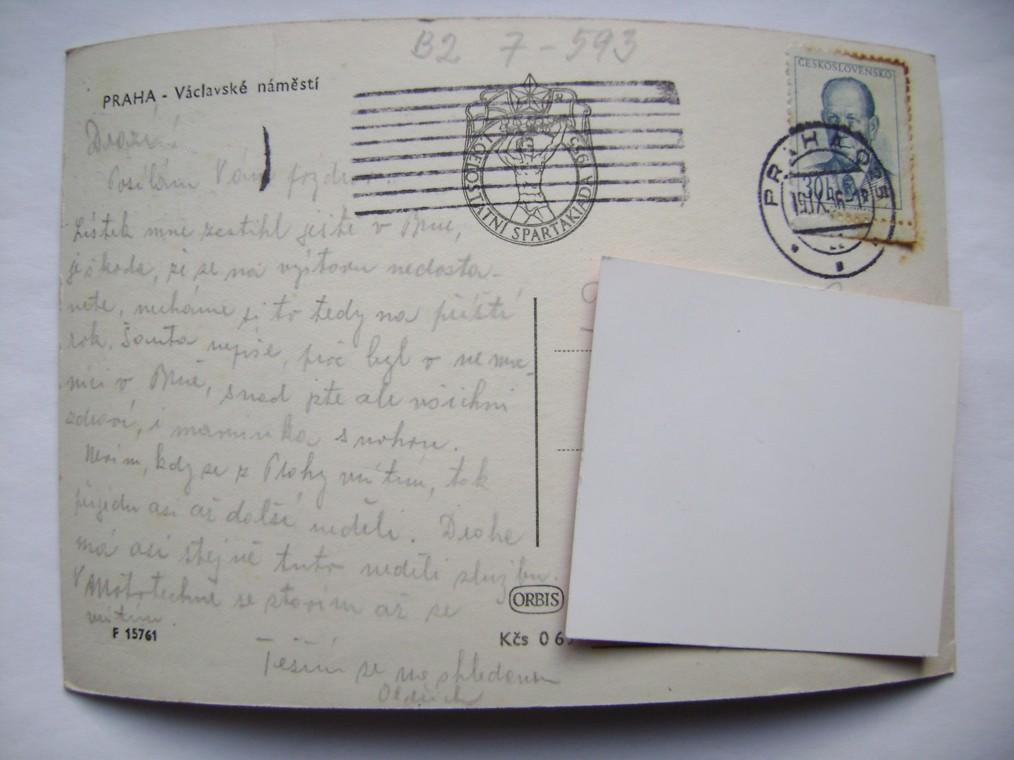 B2 7-593
PRAHA - Václavské náměstí
ČESKOSLOVENSKO
I. CELOSTÁTNÍ SPARTAKIÁDA 1955
PRAHA 025
30 h
Drazí
Posílám Vám pozdrav.
Lístek mne zastihl ještě v Brně,
je škoda, že se na výstavu nedosta-
nete, necháme si to tedy na příští
rok. Šanta nepíše, proč byl v nemoc-
nici v Brně, snad jste ale všichni
zdraví, i maminka s nohou.
Nevím, kdy se z Prahy vrátím, tak
přijedu asi až další neděli. Draha
má asi stejně tuto neděli službu.
V Mototechně se stavím až se
vrátím.
ORBIS
F 15761
Kčs 0 6
Těším se na shledanou
Oldřich